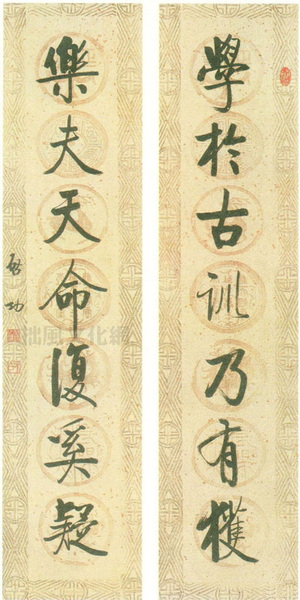 學於古訓乃有獲
樂夫天命復奚疑
啟功
拙風文化網